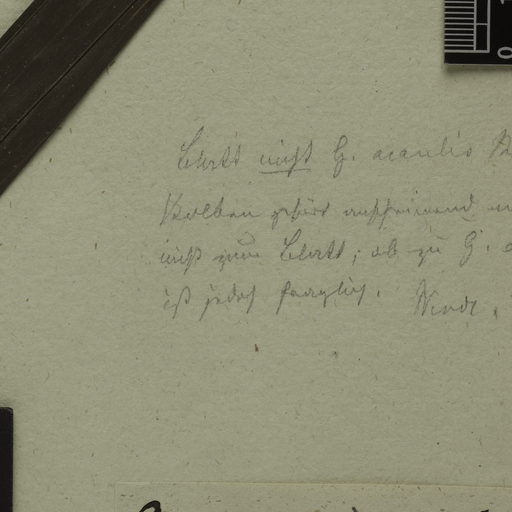 Blatt nicht G. acaulis
Kolben gehört anscheinend
nicht zum Blatt; ob zu G.
ist jedoch fraglich. Wendt.
0